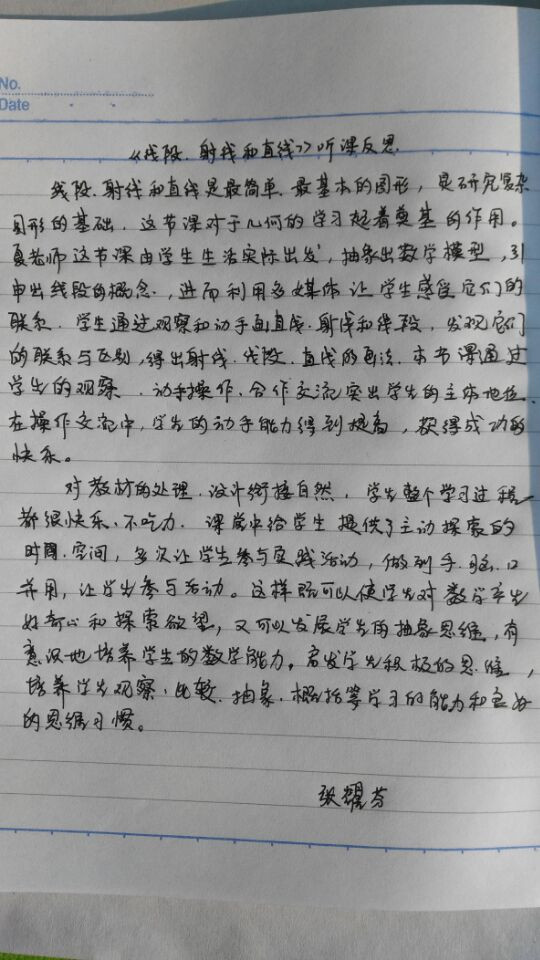 No.
Date
《线段、射线和直线》听课反思
线段、射线和直线是最简单、最基本的图形，是研究复杂
图形的基础。这节课对于几何的学习起着奠基的作用。
夏老师这节课由学生生活实际出发，抽象出数学模型，引
申出线段的概念，进而利用多媒体让学生感受它们的
联系。学生通过观察和动手画直线、射线和线段，发现它们
的联系与区别，得出射线、线段、直线的画法。本节课通过
学生的观察、动手操作、合作交流突出学生的主体地位。
在操作交流中，学生的动手能力得到提高，获得成功的
快乐。
对教材的处理、设计衔接自然，学生整个学习过程
都很快乐、不吃力。课堂中给学生提供了主动探索的
时间、空间，多次让学生参与实践活动，做到手、脑、口
并用，让学生参与活动。这样既可以使学生对数学产生
好奇心和探索欲望，又可以发展学生的抽象思维，有
意识地培养学生的数学能力。启发学生积极的思维，
培养学生观察、比较、抽象、概括等学习的能力和良好
的思维习惯。
张耀芬